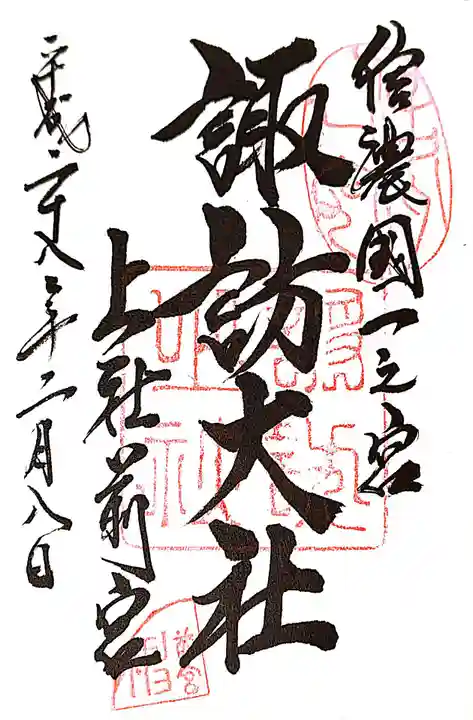 信濃國一之宮
諏訪大社
上社前宮
平成二十八年二月八日